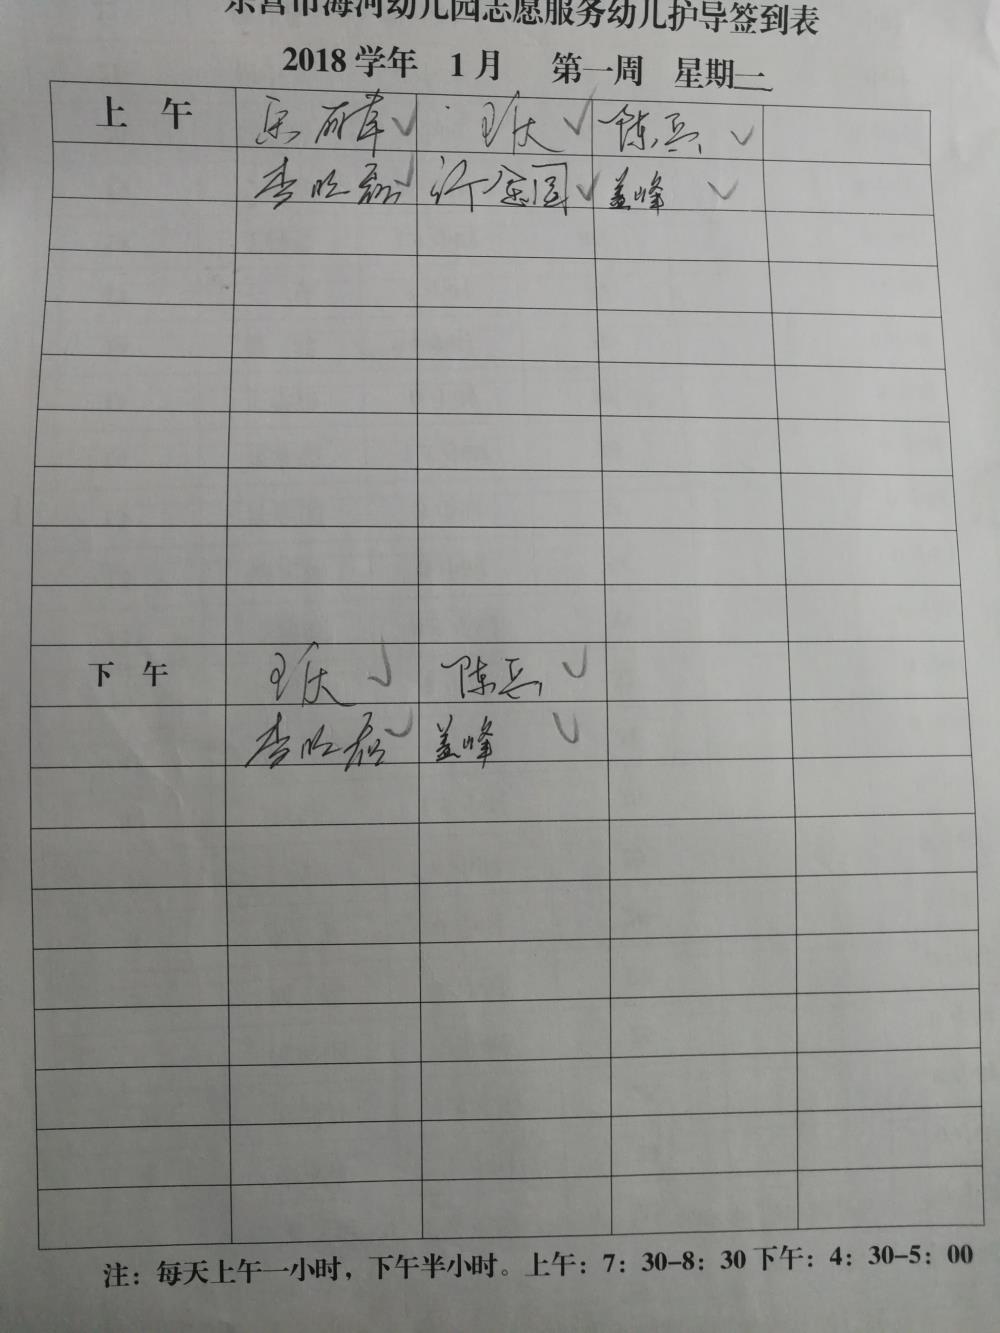 东营市海河幼儿园志愿服务幼儿护导签到表
2018 学年 1 月 第一周 星期二
上 午 王庆 陈兵
李晓磊 许金国 盖峰
下 午 王庆 陈兵
李晓磊 盖峰
注：每天上午一小时，下午半小时。上午：7：30-8：30 下午：4：30-5：00